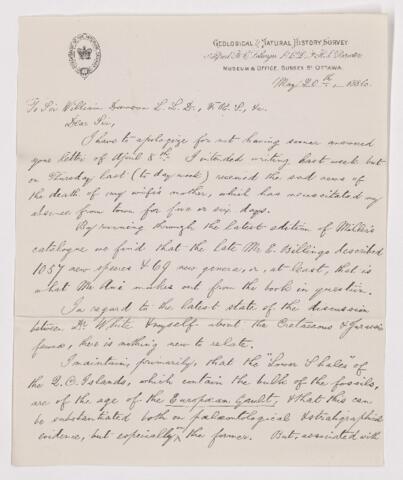 GEOLOGICAL & NATURAL HISTORY SURVEY
Alfred R. C. Selwyn, L.L.D., F.R.S. Director
MUSEUM & OFFICE, SUSSEX ST OTTAWA.
May 20th, 1886.
To Sir William Dawson L.L.D., F.R.S., &c.
Dear Sir,
I have to apologize for not having sooner answered
your letter of April 8th. I intended writing last week but
on Thursday last (to day week) received the sad news of
the death of my wife's mother, which has necessitated my
absence from town for five or six days.
By running through the latest edition of Miller's
catalogue we find that the late Mr E. Billings described
1057 new species & 69 new genera, or, at least, that is
what Mr Ami makes out from the book in question.
In regard to the latest state of the discussion
between Dr White & myself about the Cretaceous & Jurassic
fauna, there is nothing new to relate.
I maintain, primarily, that the "Lower Shales" of
the Q.C. Islands, which contain the bulk of the fossils,
are of the age of the European Gault, & that this can
be substantiated both on palæontological & stratigraphical
evidence, but especially the former. But, associated with